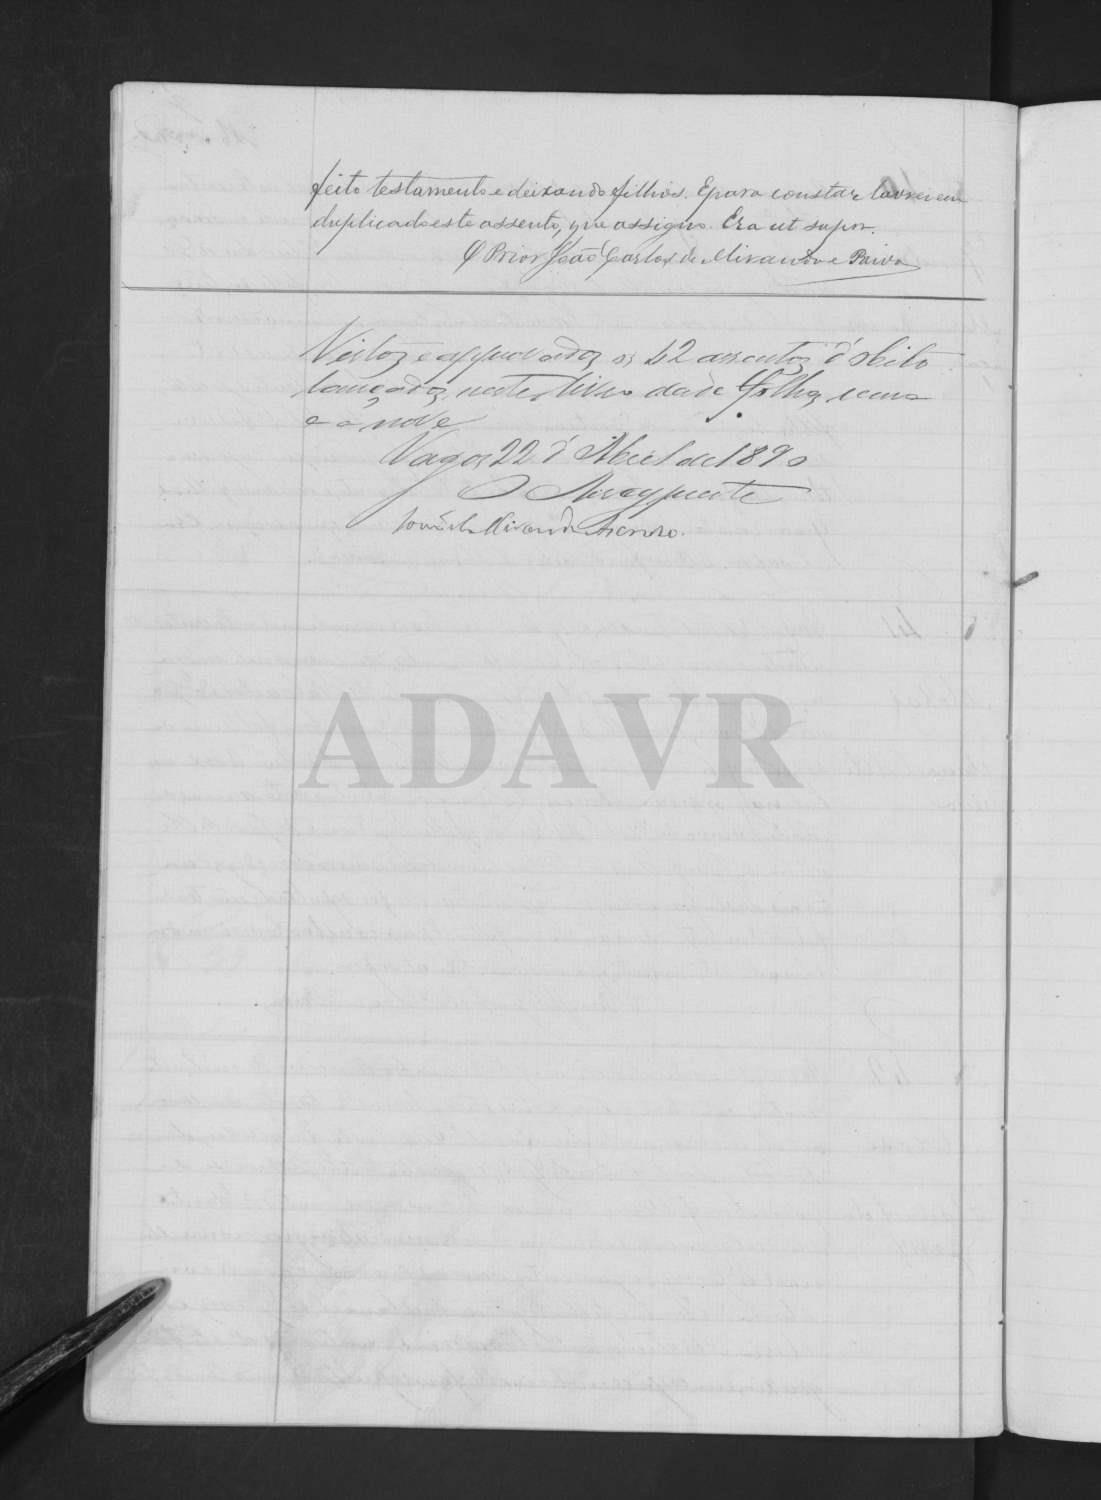 feito testamento e deixando filhos. E para constar lavrei em
duplicado este assento, que assigno. Era ut supra.
O Prior João Carlos de Miranda e Paiva
Vistos e approvados os 42 assentos d'obito
lançados neste livro desde folhas uma
e a nove
Vagos 22 d'Abril de 1890
O Arcypreste
João de Miranda Ascenso.
ADAVR